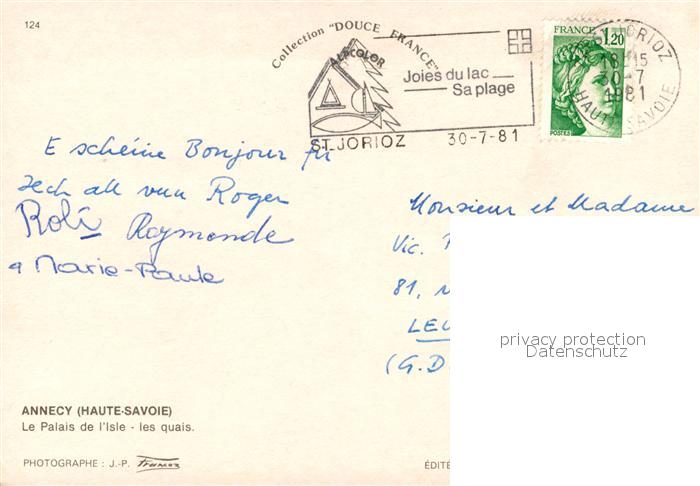 124
Collection "DOUCE FRANCE"
ALPCOLOR
Joies du lac
Sa plage
ST. JORIOZ 30-7-81
FRANCE 1,20
POSTES
ST JORIOZ
18 H 15
30-7
1981
HAUTE-SAVOIE
E schéine Bonjour fir
iech all vun Roger
Roli Raymonde
a Marie-Paule
Monsieur et Madame
Vic.
81,
LEU
(G.D.
privacy protection
Datenschutz
ANNECY (HAUTE-SAVOIE)
Le Palais de l'Isle - les quais.
PHOTOGRAPHE : J.-P.
ÉDITÉ